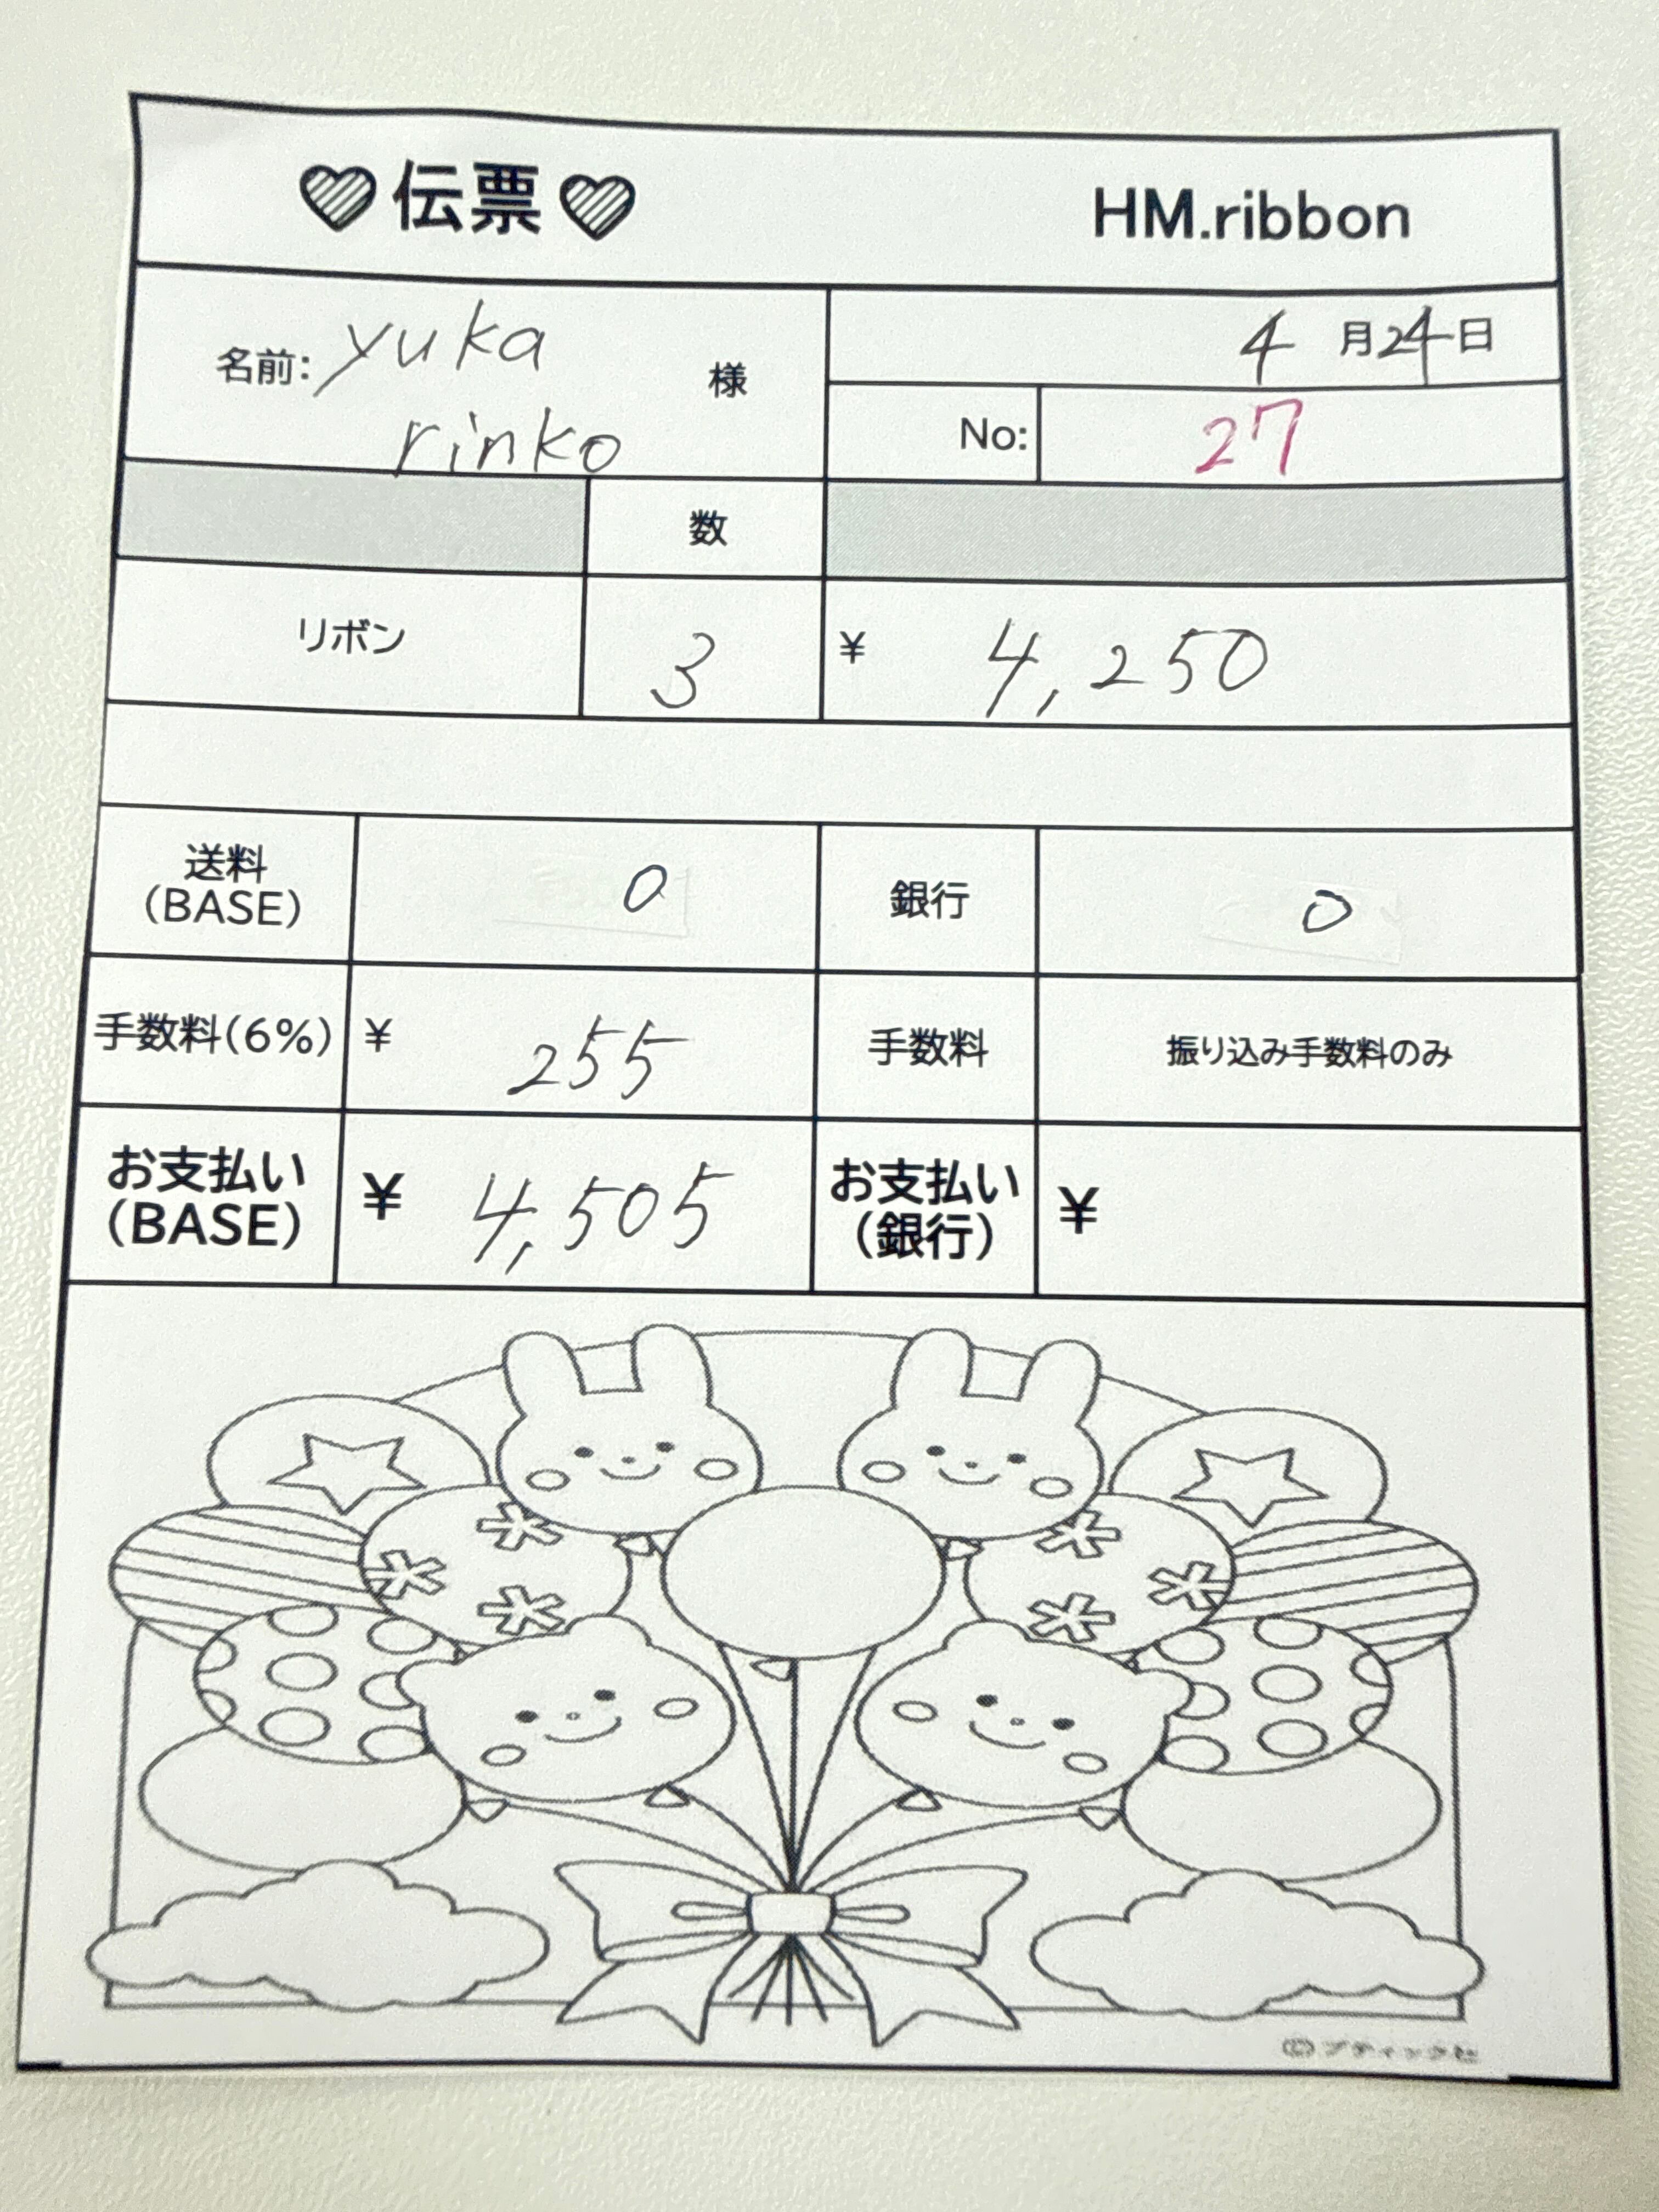 伝票 HM.ribbon
名前: yuka 様 4月24日
rinko No: 27
数
リボン 3 ¥ 4,250
送料 0 銀行 0
(BASE)
手数料(6%) ¥ 255 手数料 振り込み手数料のみ
お支払い ¥ 4,505 お支払い ¥
(BASE) (銀行)
©ブティック社